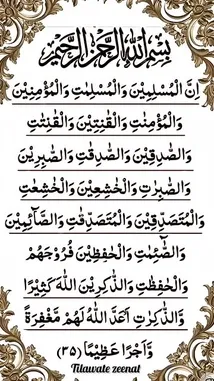 بِسْمِ اللّٰهِ الرَّحْمٰنِ الرَّحِيْمِ
اِنَّ الْمُسْلِمِيْنَ وَالْمُسْلِمٰتِ وَالْمُؤْمِنِيْنَ
وَالْمُؤْمِنٰتِ وَالْقٰنِتِيْنَ وَالْقٰنِتٰتِ
وَالصّٰدِقِيْنَ وَالصّٰدِقٰتِ وَالصّٰبِرِيْنَ
وَالصّٰبِرٰتِ وَالْخٰشِعِيْنَ وَالْخٰشِعٰتِ
وَالْمُتَصَدِّقِيْنَ وَالْمُتَصَدِّقٰتِ وَالصَّآئِمِيْنَ
وَالصّٰٓئِمٰتِ وَالْحٰفِظِيْنَ فُرُوْجَهُمْ
وَالْحٰفِظٰتِ وَالذّٰكِرِيْنَ اللّٰهَ كَثِيْرًا
وَّالذّٰكِرٰتِ اَعَدَّ اللّٰهُ لَهُمْ مَّغْفِرَةً
وَّاَجْرًا عَظِيْمًا (٣٥)
Tilawate zeenat